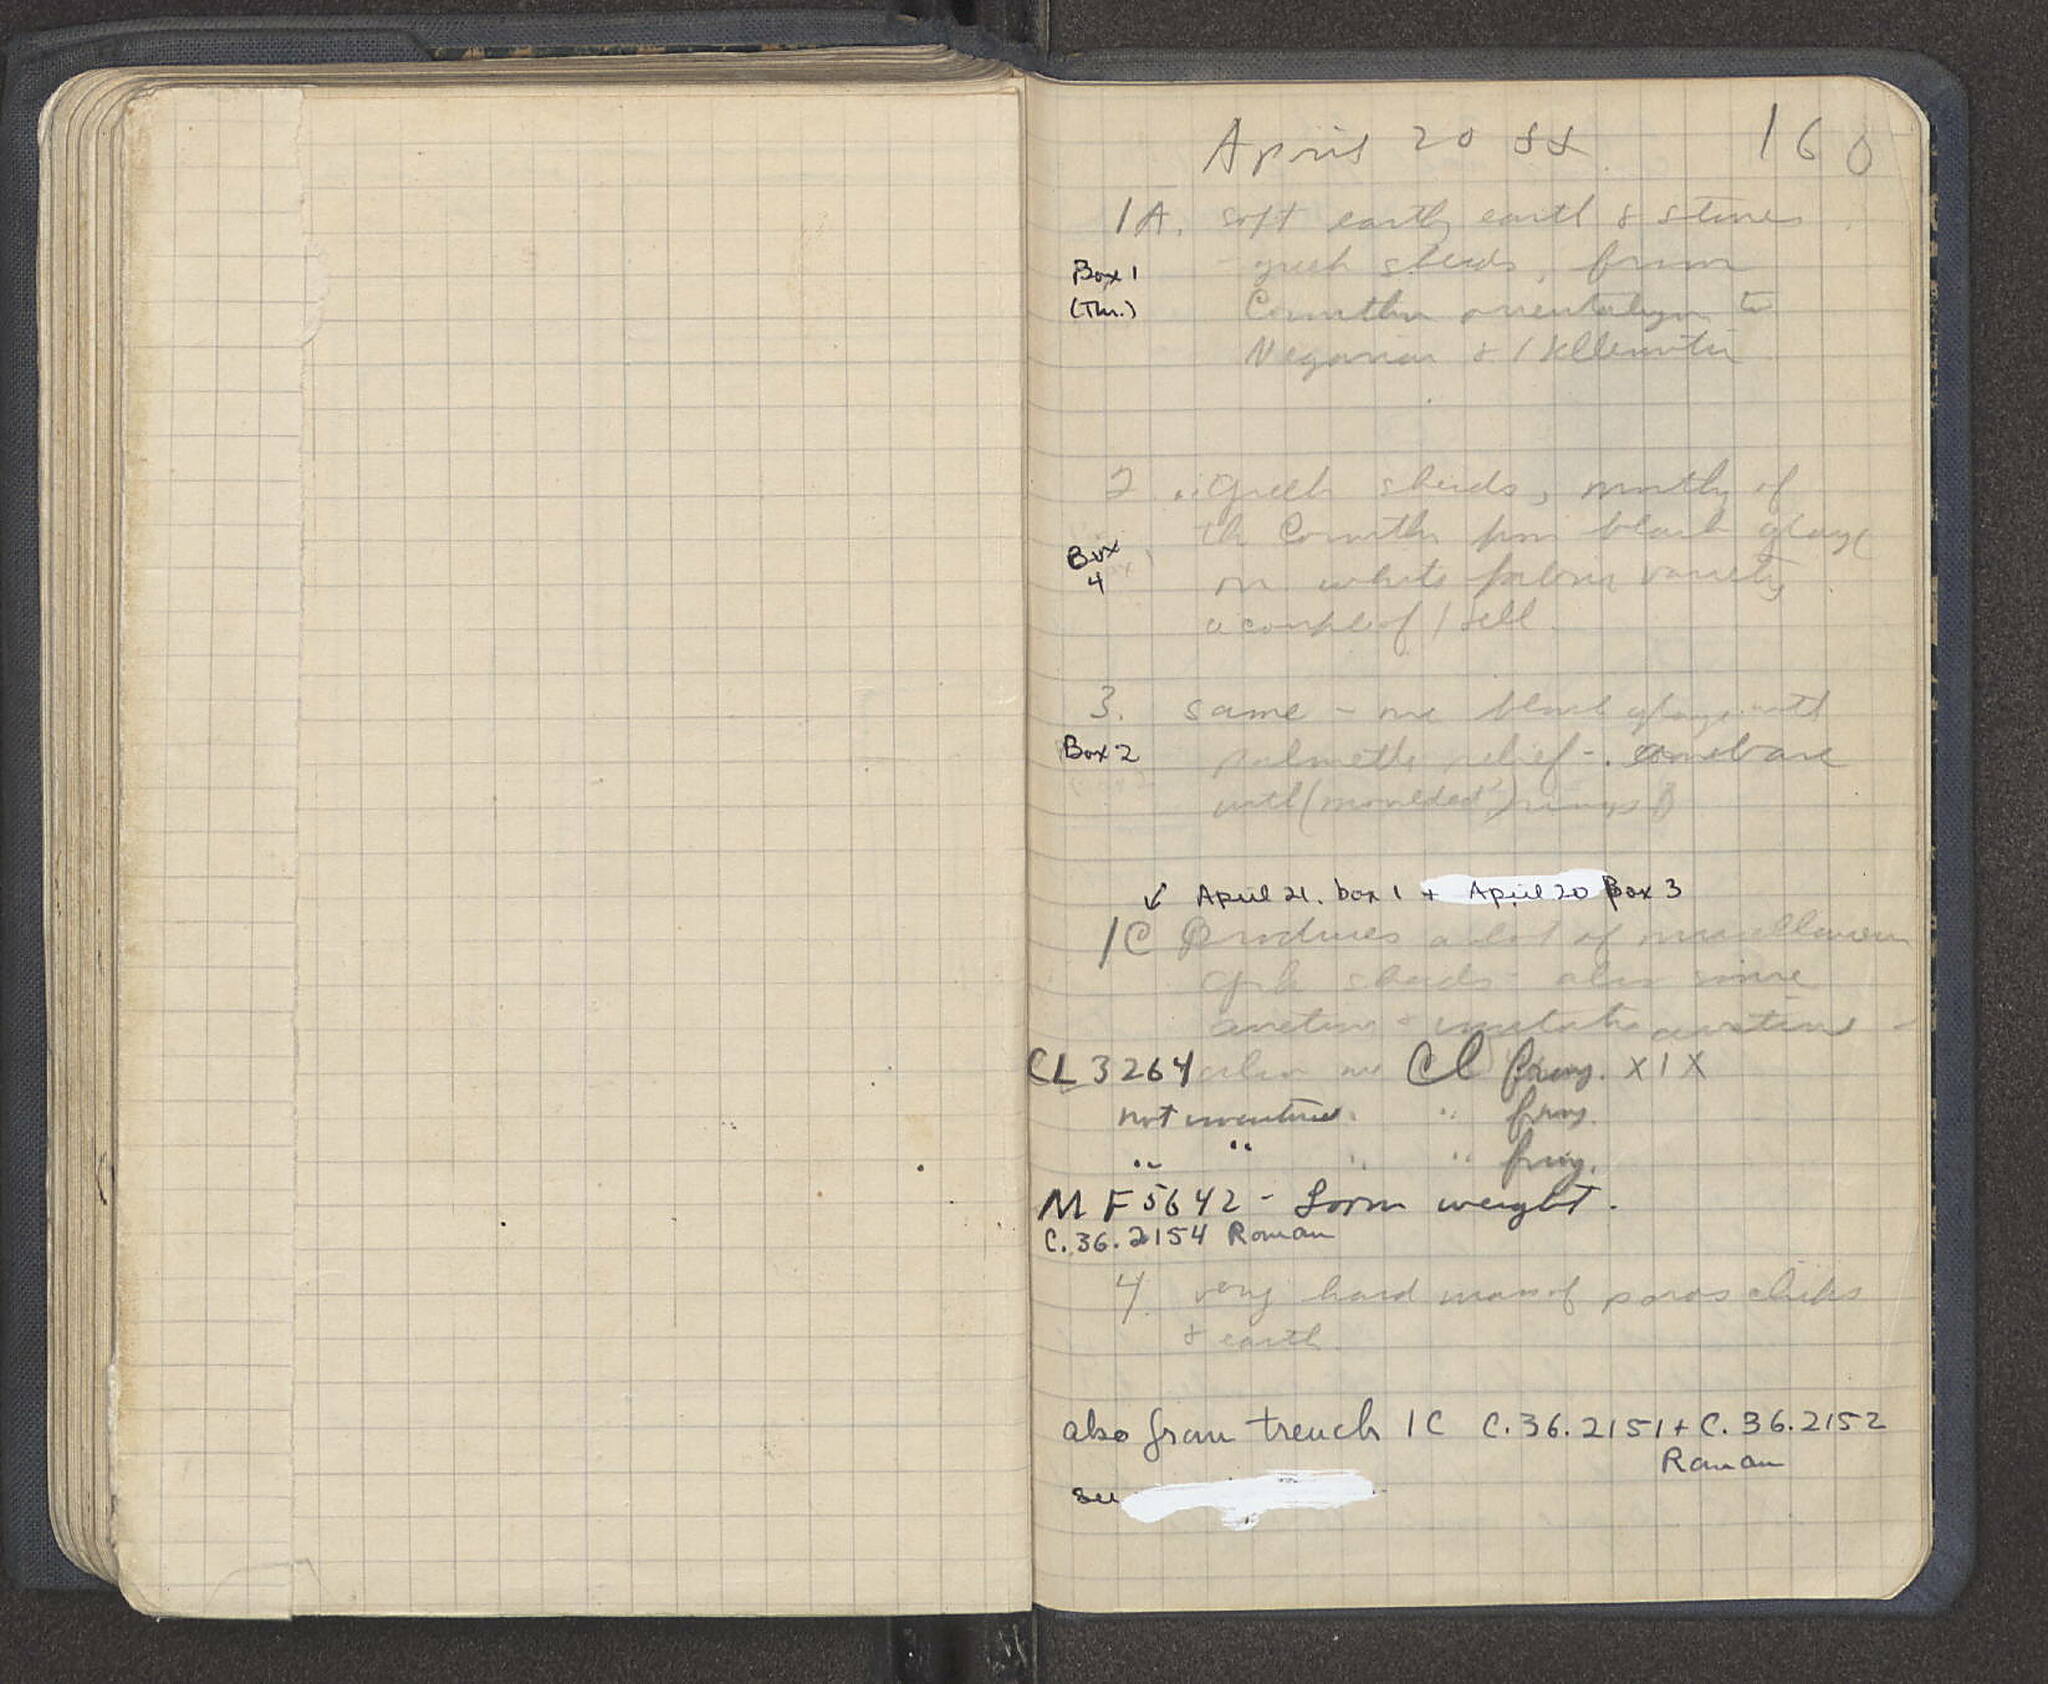 April 20 ss 160
1A. soft earthy earth & stones
Box 1 greek sherds, from
(Thr.) Corinthn orientalizing to
Megarian & Hellenistic
2. Greek sherds, mostly of
Box the Corinthn black glaze
4 on white variety
a couple of Hell.
3. same - one black glaze with
Box 2 palmette relief - one base
with (moulded?) rings
↙ April 21. box 1 + April 20 Box 3
1C Produces a lot of miscellaneous
Grk sherds - also some
arretine & imitation arretine -
CL 3264 also one CL frag. X I X
not inventoried " frag.
" " " " frag.
MF 5642 - Loom weight.
C.36.2154 Roman
4. very hard mass of poros chips
& earth.
also from trench 1C C.36.2151 + C.36.2152
Roman
see